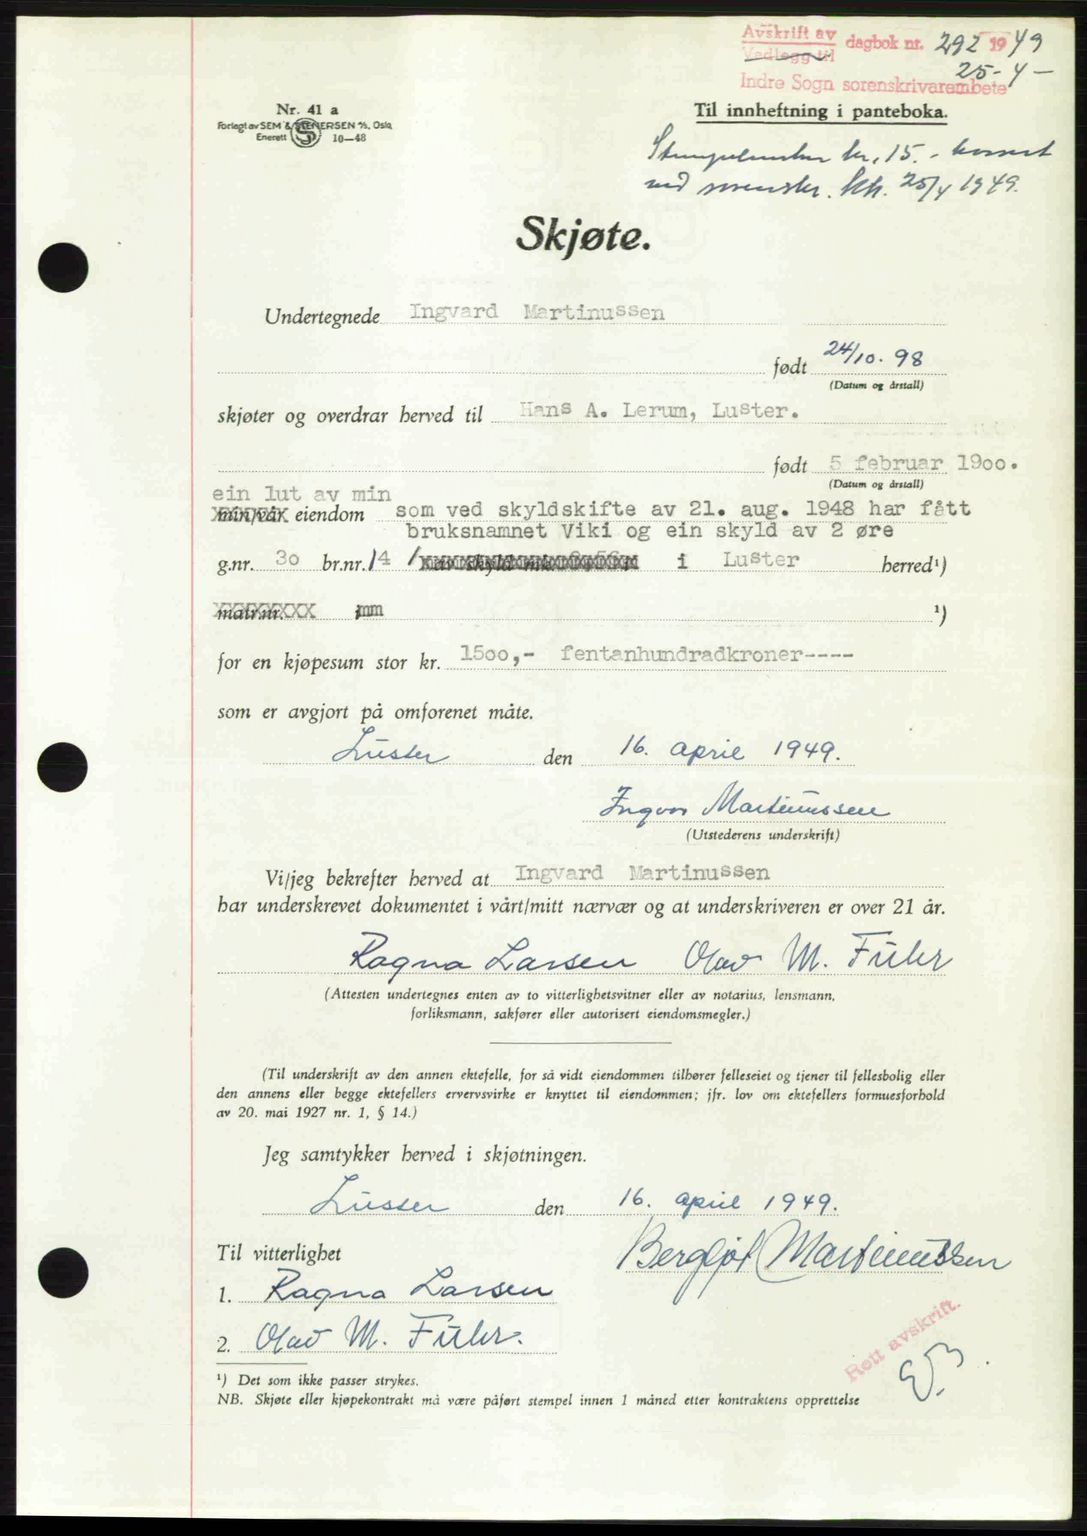 Avskrift av
Vedlegg til
dagbok nr. 292 1949
25-4-
Indre Sogn sorenskrivarembete
Nr. 41 a
Forlagt av SEM & STENERSEN A/S, Oslo
Enerett S 10—48
Til innheftning i panteboka.
Stempelmerker kr. 15.- kassert
ved sorenskr. kh. 25/4 1949.
Skjøte.
Undertegnede Ingvard Martinussen
født 24/10. 98
(Datum og årstall)
skjøter og overdrar herved til Hans A. Lerum, Luster.
født 5 februar 1900.
(Datum og årstall)
ein lut av min
min/vår eiendom som ved skyldskifte av 21. aug. 1948 har fått
bruksnamnet Viki og ein skyld av 2 øre
g.nr. 30 br.nr. 14 i Luster herred¹)
matr.nr. ¹)
for en kjøpesum stor kr. 1500,- fentanhundradkroner----
som er avgjort på omforenet måte.
Luster den 16. april 1949.
Ingvar Martinussen
(Utstederens underskrift)
Vi/jeg bekrefter herved at Ingvard Martinussen
har underskrevet dokumentet i vårt/mitt nærvær og at underskriveren er over 21 år.
Ragna Larsen Olav M. Fuhr
(Attesten undertegnes enten av to vitterlighetsvitner eller av notarius, lensmann,
forliksmann, sakfører eller autorisert eiendomsmegler.)
(Til underskrift av den annen ektefelle, for så vidt eiendommen tilhører felleseiet og tjener til fellesbolig eller
den annens eller begge ektefellers ervervsvirke er knyttet til eiendommen; jfr. lov om ektefellers formuesforhold
av 20. mai 1927 nr. 1, § 14.)
Jeg samtykker herved i skjøtningen.
Luster den 16. april 1949.
Til vitterlighet
Bergljot Martinussen
1. Ragna Larsen
2. Olav M. Fuhr.
Rett avskrift.
¹) Det som ikke passer strykes.
NB. Skjøte eller kjøpekontrakt må være påført stempel innen 1 måned etter kontraktens opprettelse